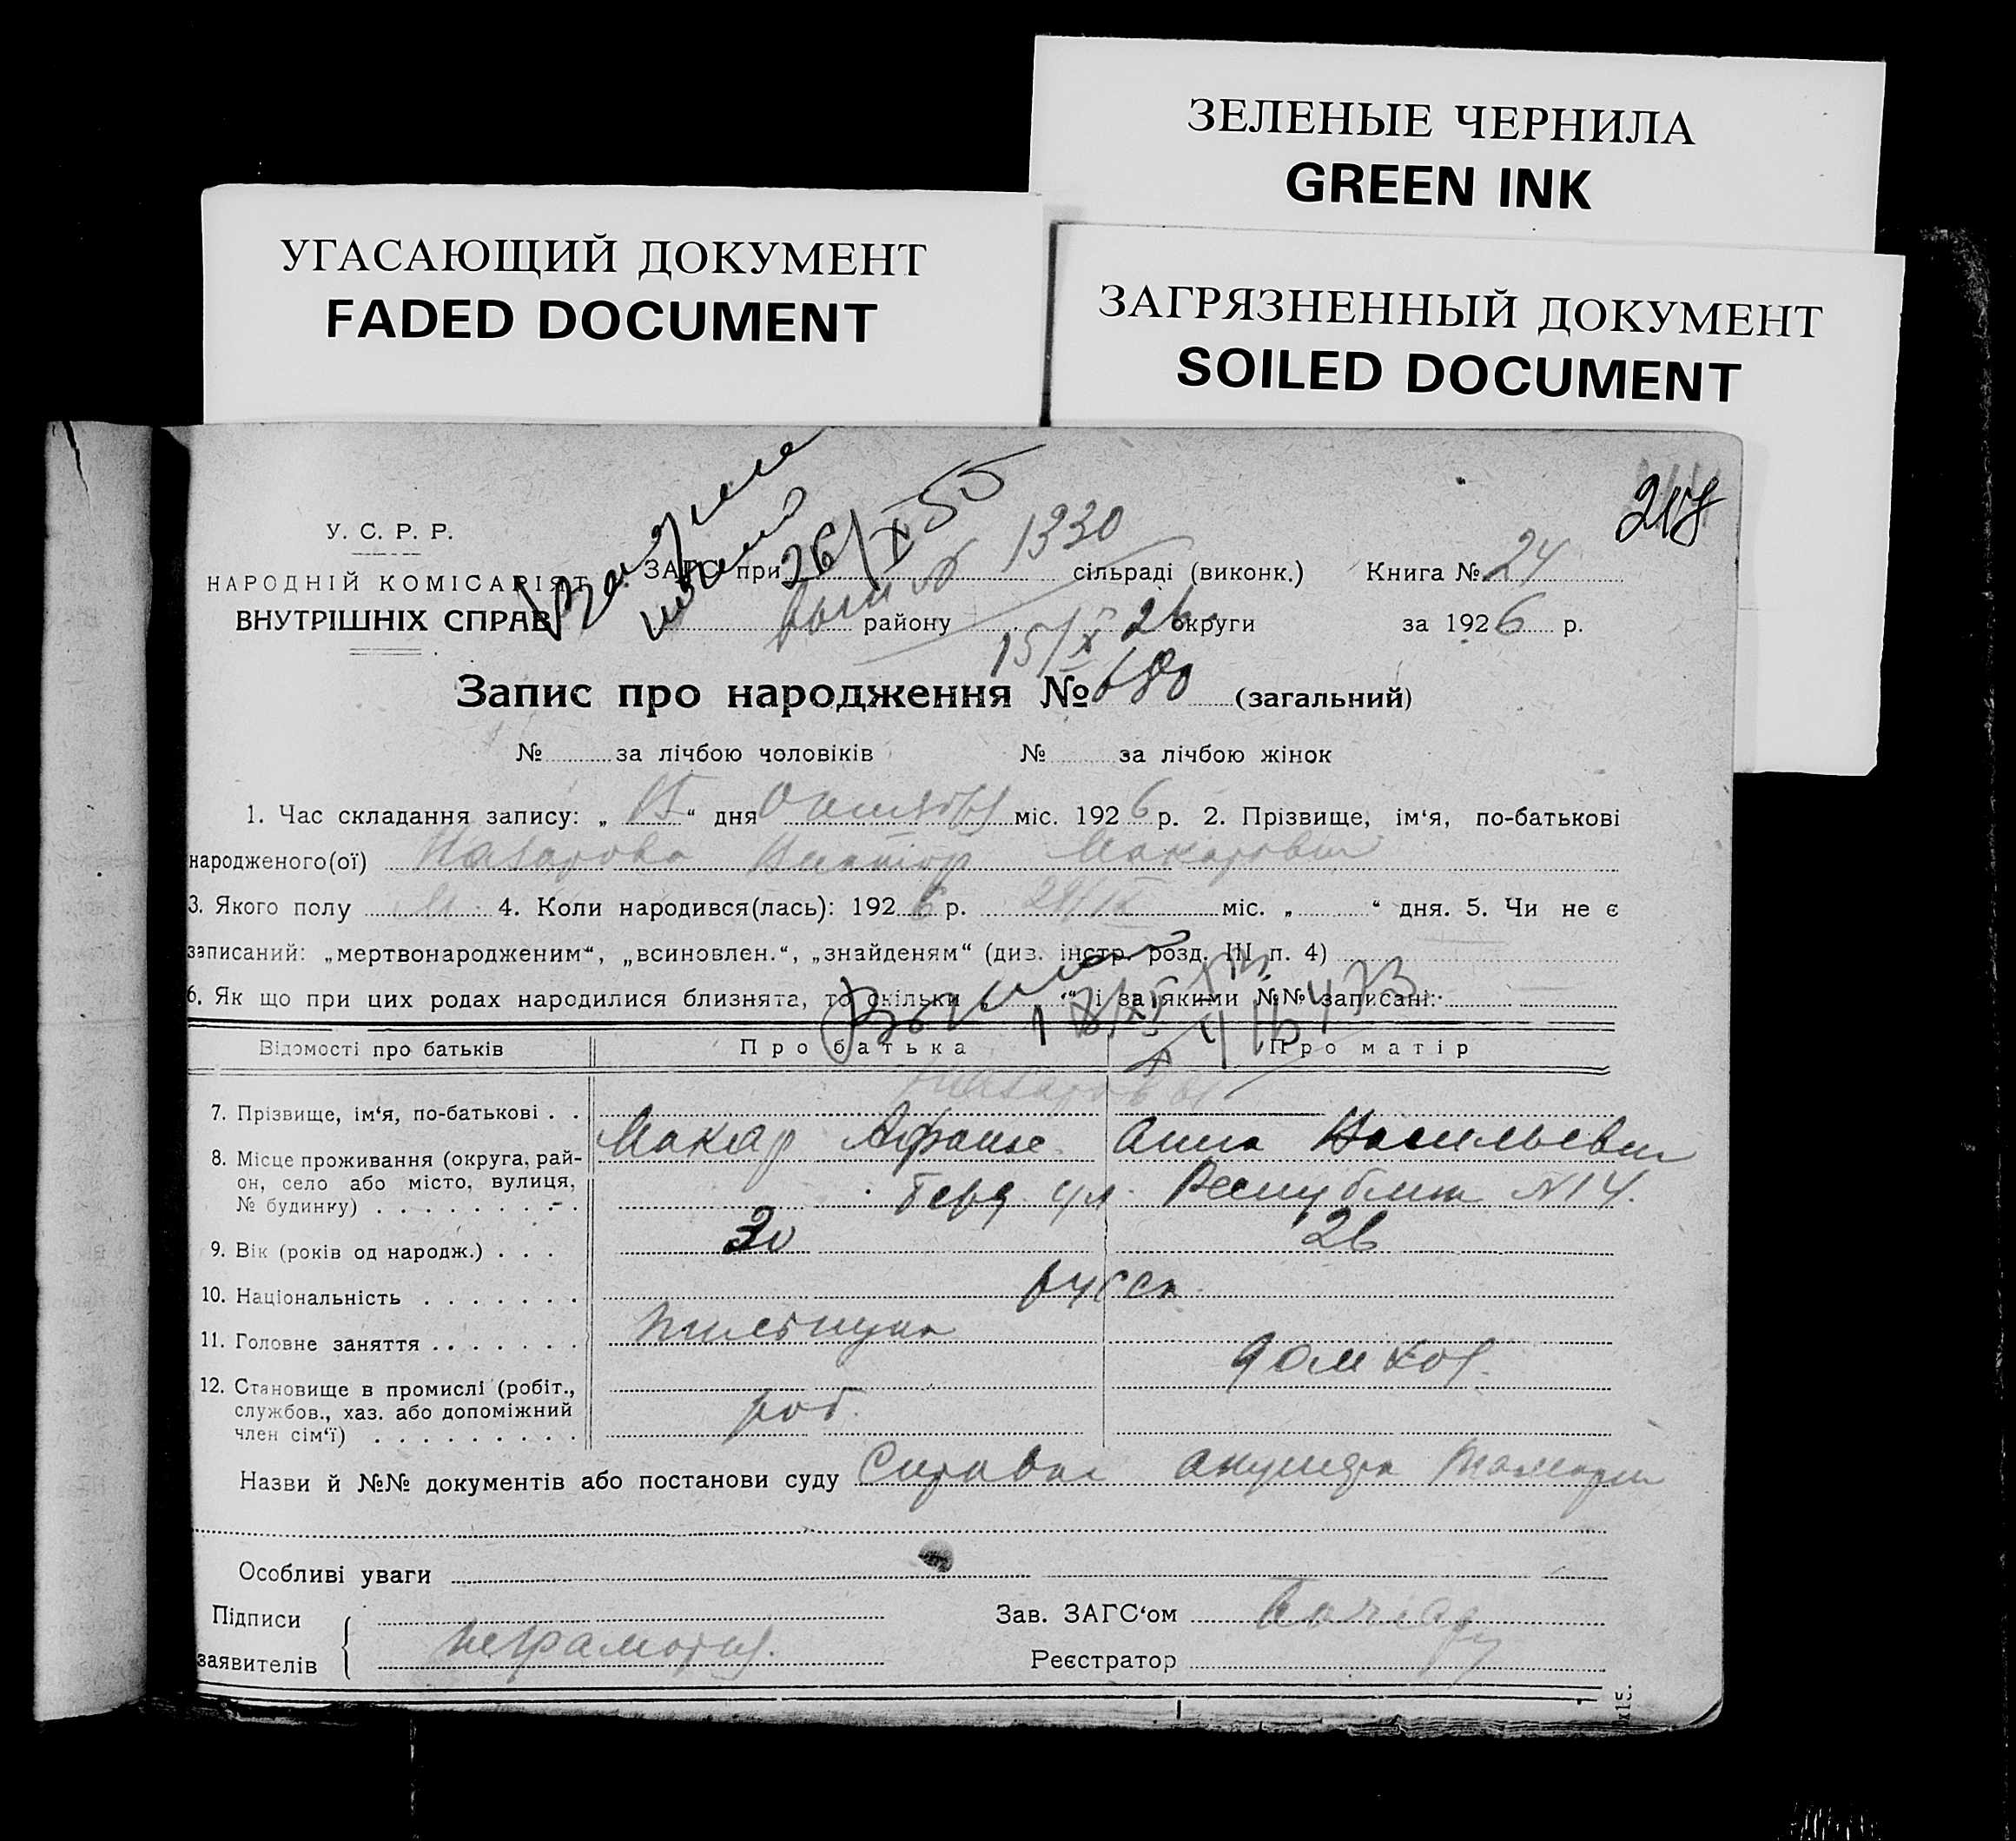 ЗЕЛЕНЫЕ ЧЕРНИЛА
GREEN INK
УГАСАЮЩИЙ ДОКУМЕНТ
FADED DOCUMENT
ЗАГРЯЗНЕННЫЙ ДОКУМЕНТ
SOILED DOCUMENT
218
У. С. Р. Р.
НАРОДНІЙ КОМІСАРІЯТ
ВНУТРІШНІХ СПРАВ
26/X 55
1330
ЗАГС при сільраді (виконк.) Книга № 24
району округи за 1926 р.
15/X 26
Запис про народження № 680 (загальний)
№ за лічбою чоловіків № за лічбою жінок
1. Час складання запису: „ 15 “ дня Октября міс. 1926 р. 2. Прізвище, ім‘я, по-батькові
народженого(ої) Назарова Виктор Макарович
3. Якого полу М. 4. Коли народився(лась): 1926 р. 29/IX міс. „ “ дня. 5. Чи не є
записаний: „мертвонародженим“, „всиновлен.“, „знайденям“ (див. інстр. розд. III п. 4)
6. Як що при цих родах народилися близнята, то скільки „ “ і за якими №№ записані:
Відомості про батьків Про батька Про матір
Назаровы
7. Прізвище, ім‘я, по-батькові . . Макар Афанас. Анна Васильевн
8. Місце проживання (округа, район, село або місто, вулиця, № будинку) ул. Республик N 14.
9. Вік (років од народж.) . . . 30 26
10. Національність русск
11. Головне заняття дом хоз.
12. Становище в промислі (робіт., службов., хаз. або допоміжний член сім‘ї) роб.
Назви й №№ документів або постанови суду Справка акушерки
Особливі уваги
Підписи заявителів неграмотный.
Зав. ЗАГС‘ом
Реєстратор